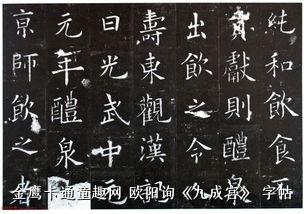 純和飲食不
貢獻則醴泉
出飲之令人
壽東觀漢記
曰光武中元
元年醴泉
京師飲之者
金鹰卡通童趣网 欧阳询《九成宫》 字帖